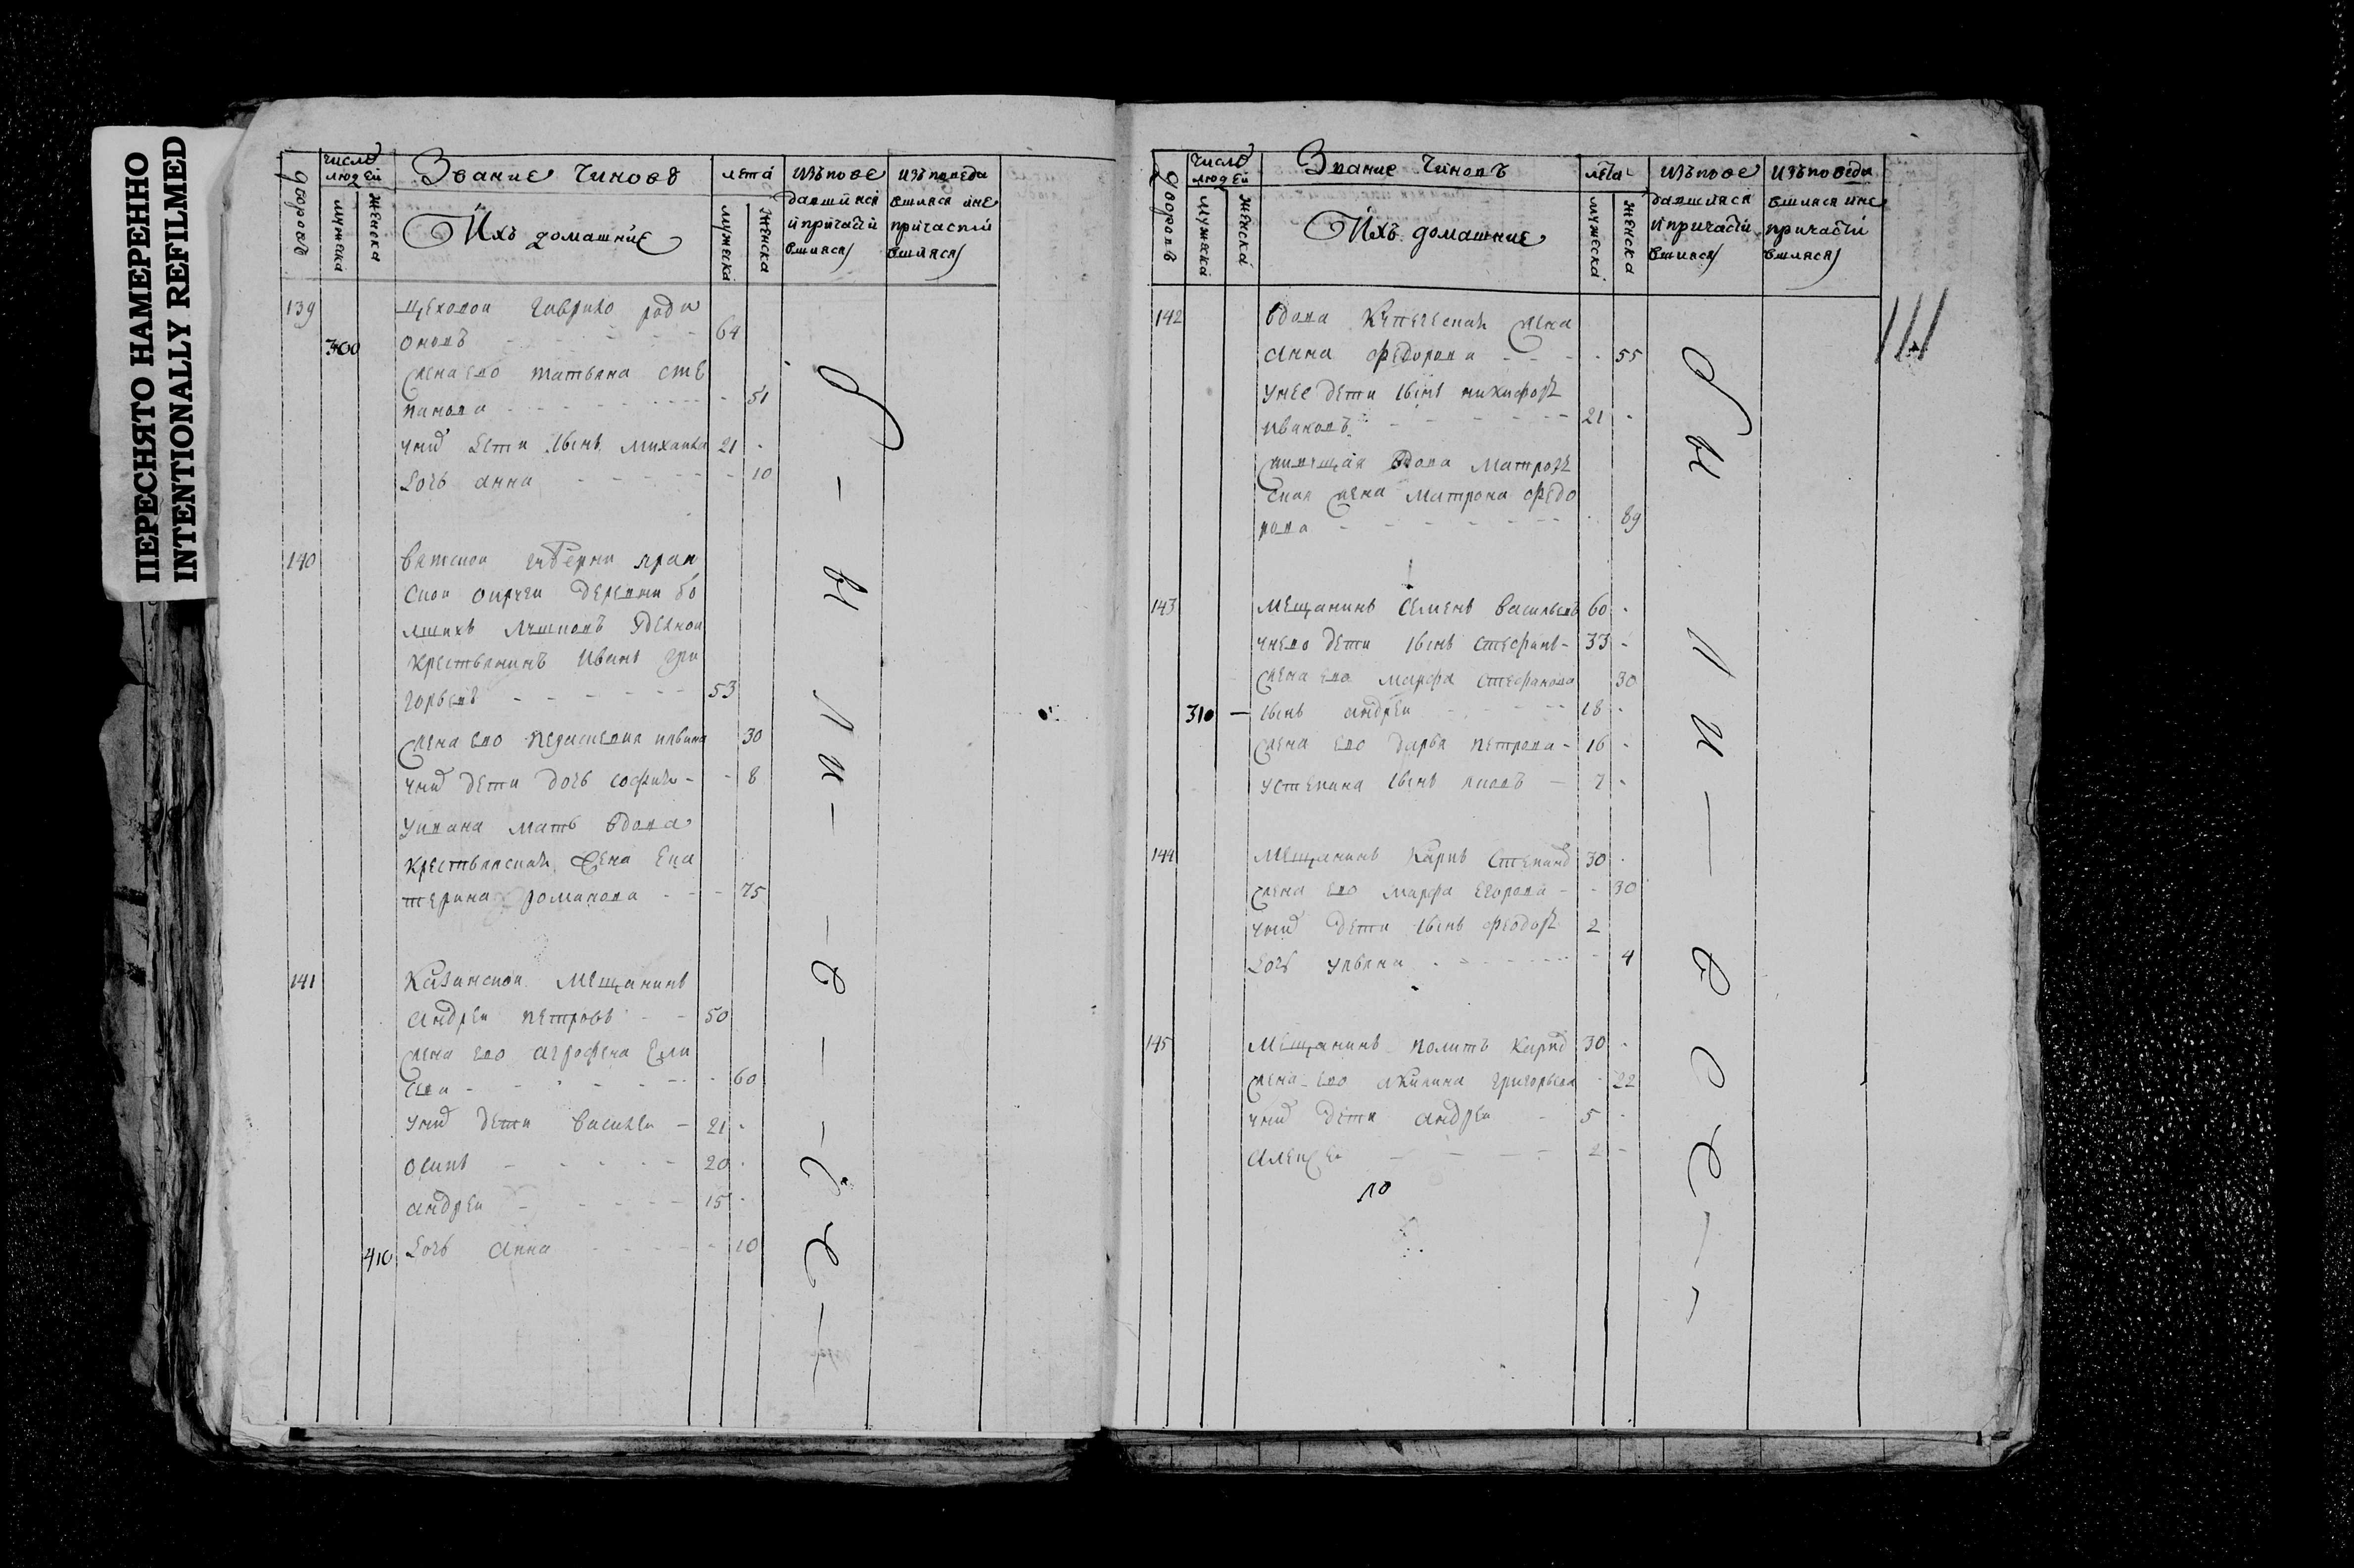 ПЕРЕСНЯТО НАМЕРЕННО
INTENTIONALLY REFILMED
дворовъ
число людей
мужеска
женска
Звание Чиновъ
Ихъ домашние
лета
мужеска
женска
изъпове
давшияся
и причасти
вшияся
изъповеда
вшияся и не
причасти
вшияся
139
300
цеховои гаврило роди
оновъ 64
жена ево татьяна сте
панова 51
унихъ дети сынъ михаила 21
дочь анна 10
140
вятскои губерни яран
скои округи деревни бо
лшихъ
крестьянинъ иванъ гри
горьевъ 53
жена ево 30
унихъ дети дочь софия 8
уивана мать вдова
крестьянская жена ека
терина романова 75
141
Казанскои мещанинъ
андреи петровъ 50
жена ево аграфена
60
унихъ дети василеи 21
осипъ 20
андреи 15
410 дочь анна 10
дворовъ
число людей
мужеска
женска
Звание Чиновъ
Ихъ домашние
лета
мужеска
женска
изъпове
давшияся
и причасти
вшияся
изъповеда
вшияся и не
причасти
вшияся
142
вдова купеческая жена
анна федорова 55
унее дети сынъ никифоръ
ивановъ 21
вдова матроз
ская жена матрона федо
рова 89
143
мещанинъ семенъ васильевъ 60
унево дети сынъ стефанъ 33
жена ево марфа стефанова 30
310 — сынъ андреи 18
жена ево дарья петрова 16
устепана сынъ яковъ 7
144
мещанинъ карпъ степановъ 30
жена ево марфа егорова 30
унихъ дети сынъ феодоръ 2
дочь ульяна 4
145
мещанинъ политъ карповъ 30
жена ево акилина григорьева 22
унихъ дети андреи 5
алексеи 2
по